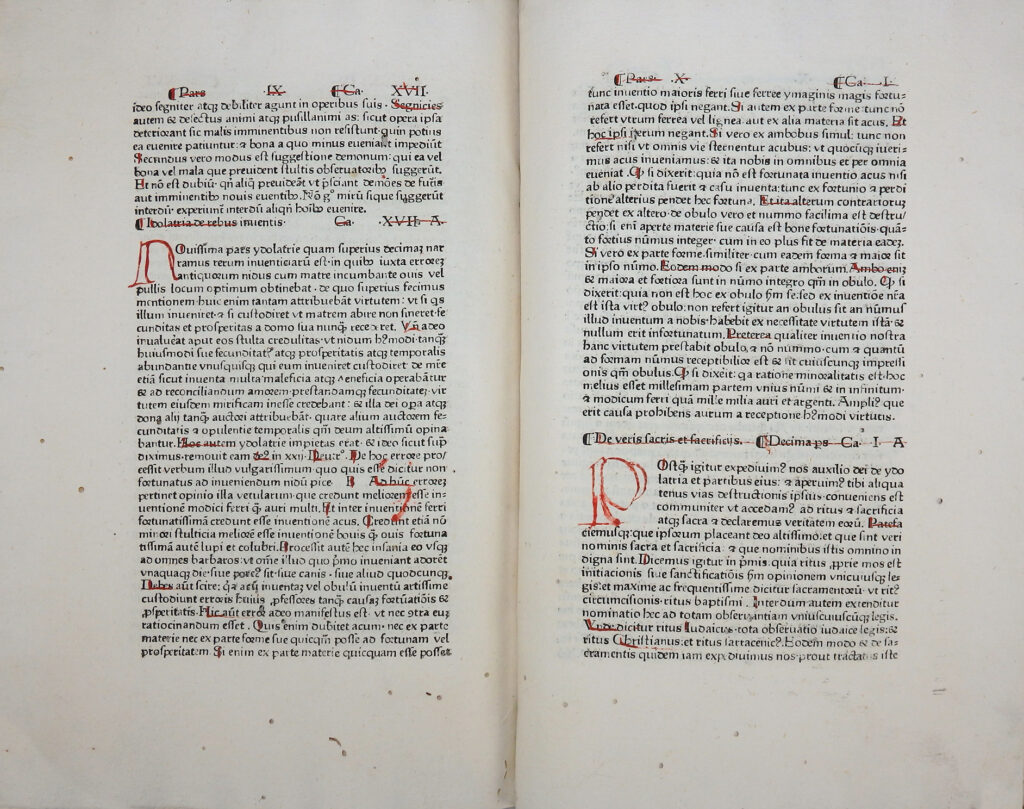 Pars IX Ca. XVII
ideo segniter atqꝫ debiliter agunt in operibus suis. Segnicies
autem & defectus animi atqꝫ pusillanimi as: sicut opera ipsa
deteriorant sic malis imminentibus non resistunt. quin potius
ea euenire patiuntur: & bona a quo minus eueniāt impediūt
Secundus vero modus est suggestione demonum: qui ea vel
bona vel mala que preuident stultis obseruatoribꝰ suggerūt.
Et nō est dubiū. qn̄ aliq̄ preuideāt vt p̄sciant demōes de futuris
aut imminentibꝰ nouis euentibꝰ. Nō gͦ mirū si que suggerūt
interdū experiunt interdū aliqn̄ hoībꝰ euenire.
Idolatria de rebus inuentis. Ca. XVII. A.
NOuissima pars ydolatrie quam superius decimaꝫ nar
ramus rerum inuenticiarū est. in quibꝰ iuxta erroreꝫ
antiquorum nidus cum matre incumbante ouis vel
pullis locum optimum obtinebat. de quo superius fecimus
mentionem. huic enim tantam attribuebāt virtutem: vt si qs
illum inueniret. & si custodiret vt matrem abire non sineret. fe
cunditas et prosperitas a domo sua nunqꝫ recederet. Vn̄ adeo
inualuerat aput eos stulta credulitas. vt nidum h?modi. tanqꝫ
huiusmodi sue fecunditat? atqꝫ prosperitatis atqꝫ temporalis
abundantie vnusquisqꝫ qui eum inueniret custodiret. de mr̄e
etiā sicut inuenta multa maleficia atqꝫ veneficia operabātur
& ad reconciliandum amorem. prestandamqꝫ fecunditateꝫ. vir
tutem eiusdem mirificam inesse credebant: & illa dei opa atqꝫ
dona alij tanqꝫ auctori attribuebāt. quare alium auctorem fe
cunditatis & opulentie temporalis qm̄ deum altissimū opina
bantur. Hoc autem ydolatrie impietas erat. & ideo sicut sup̄
diximus. remouit eam de? in xxij. Deutrͦ. De hoc errore pro
cessit verbum illud vulgarissimum. quo quis esse dicitur non
fortunatus ad inueniendum nidū pice. B Ad huc erroreꝫ
pertinet opinio illa vetularum que credunt meliorem esse in-
uentione modici ferri qꝫ auri multi. Et inter inuentione ferri
fortunatissimā credunt esse inuentionē acus. Credunt etiā nō
mirori stulticia meliorē esse inuentionē bouis qꝫ ouis fortuna
tissimā autē lupi et colubri. Processit autē hec insania eo vsqꝫ
ad omnes barbaros: vt om̄e illud quo p̄mo inueniant adoret
vnaquaqꝫ die. siue porc? sit. siue canis. siue aliud quodcunqꝫ
Debes aūt scire: qꝫ acū inuentaꝫ vel obulū inuentū artissime
custodiunt erroris huius ꝓfessores tanqꝫ causaꝫ fortūatiōis &
ꝓsperitatis. Hic aūt error adeo manifestus est. vt nec otra euꝫ
ratiocinandum esset. Quis enim dubitet acum. nec ex parte
materie nec ex parte forme sue quicqm̄ posse ad fortunam vel
prosperitatem. Si enim ex parte materie quicquam esse posset
Pars X. Ca. I.
tunc inuentio maioris ferri siue ferree ymaginis magis fortu-
nata esset. quod ipsi negant. Si autem ex parte forme: tunc nō
refert vtrum ferrea vel lignea. aut ex alia materia sit acus. Et
hoc ipsi iterum negant. Si vero ex ambobus simul: tunc non
refert nisi vt omnis vie sternentur acubus: vt quocūqꝫ iueri-
mus acus inueniamus: & ita nobis in omnibus et per omnia
eueniat. Qꝫ si dixerit: quia nō est fortunata inuentio acus nisi
ab alio perdita fuerit & casu inuenta: tunc ex fortunio & perdi
tione alterius pendet hec fortuna. Et ita alterum contrariorum
pendet ex altero. de obulo vero et nummo facilima est destru/
ctio: si enī aperte materie sue causa est bone fortunatiōis. quā-
to fortius nūmus integer. cum in eo plus sit de materia eadeꝫ.
Si vero ex parte forme. similiter: cum eadem forma & maior sit
in ipso nūmo. Eodem modo si ex parte amborum. Ambo enī
& maiora et fortiora sunt in nūmo integro qm̄ in obulo. Qꝫ si
dixerit: quia non est hoc ex obulo fm̄ se. sed ex inuentiōe nr̄a
est ista virt? obulo: non refert igitur an obulus sit an nūmus
illud inuentum a nobis. habebit ex necessitate virtutem istā: &
nullum erit infortunatum. Preterea qualiter inuentio nostra
hanc virtutem prestabit obulo. & nō nummo. cum & quantū
ad formam nūmus receptibilior est & sit cuiuscunqꝫ impressi
onis qm̄ obulus. Qꝫ si dixerit: qa ratione minoralitatis est. hoc
melius esset millesimam partem vnius nūmi & in infinitum.
& modicum ferri quā mille milia auri et argenti. Ampli? que
erit causa prohibens aurum a receptione h?modi virtutis.
De veris sacris et sacrificijs. Decima ps Ca. I. A
POstqꝫ igitur expediuim? nos auxilio dei de ydo
latria et partibus eius: & aperuim? tibi aliqua
tenus vias destructionis ipsius. conueniens est
communiter vt accedam? ad ritus & sacrificia
atqꝫ sacra & declaremus veritatem eorū. Patefa
ciemusqꝫ: que ipsorum placeant deo altissimo: et que sint veri
nominis sacra et sacrificia: & que nominibus istis omnino in
digna sint. Dicemus igitur in p̄mis. quia ritus ꝓprie mos est
initiacionis siue sanctificatiōis fm̄ opinionem vniucuiusqꝫ le-
gis: et maxime ac frequentissime dicitur sacramentorū. vt rit?
circumcisionis. ritus baptismi. Interdum autem extenditur
nominatio hec ad totam obseruantiam vniuscuiuscūqꝫ legis.
Vnde dicitur ritus Iudaicus. tota obseruatio iudaice legis: &
ritus Christianus: et ritus sarracenic?. Eodem modo & de sa-
cramentis quidem iam expediuimus nos. prout tractatus iste